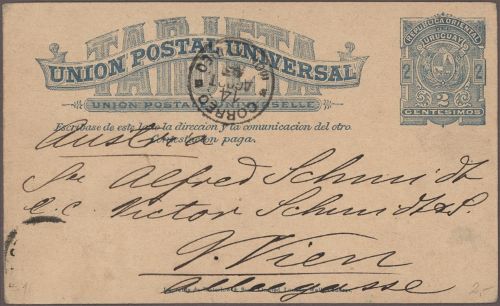 TARJETA
UNION POSTAL UNIVERSAL
REPUBLICA ORIENTAL
DEL URUGUAY
2 2
2
CENTESIMOS
UNION POSTALE UNIVERSELLE
CORREO
14
Escribase de este lado la direccion y la comunicacion del otro.
Contestacion paga.
Austria
Sr Alfred Schmidt
Victor Schmidt & S.
Wien
2-